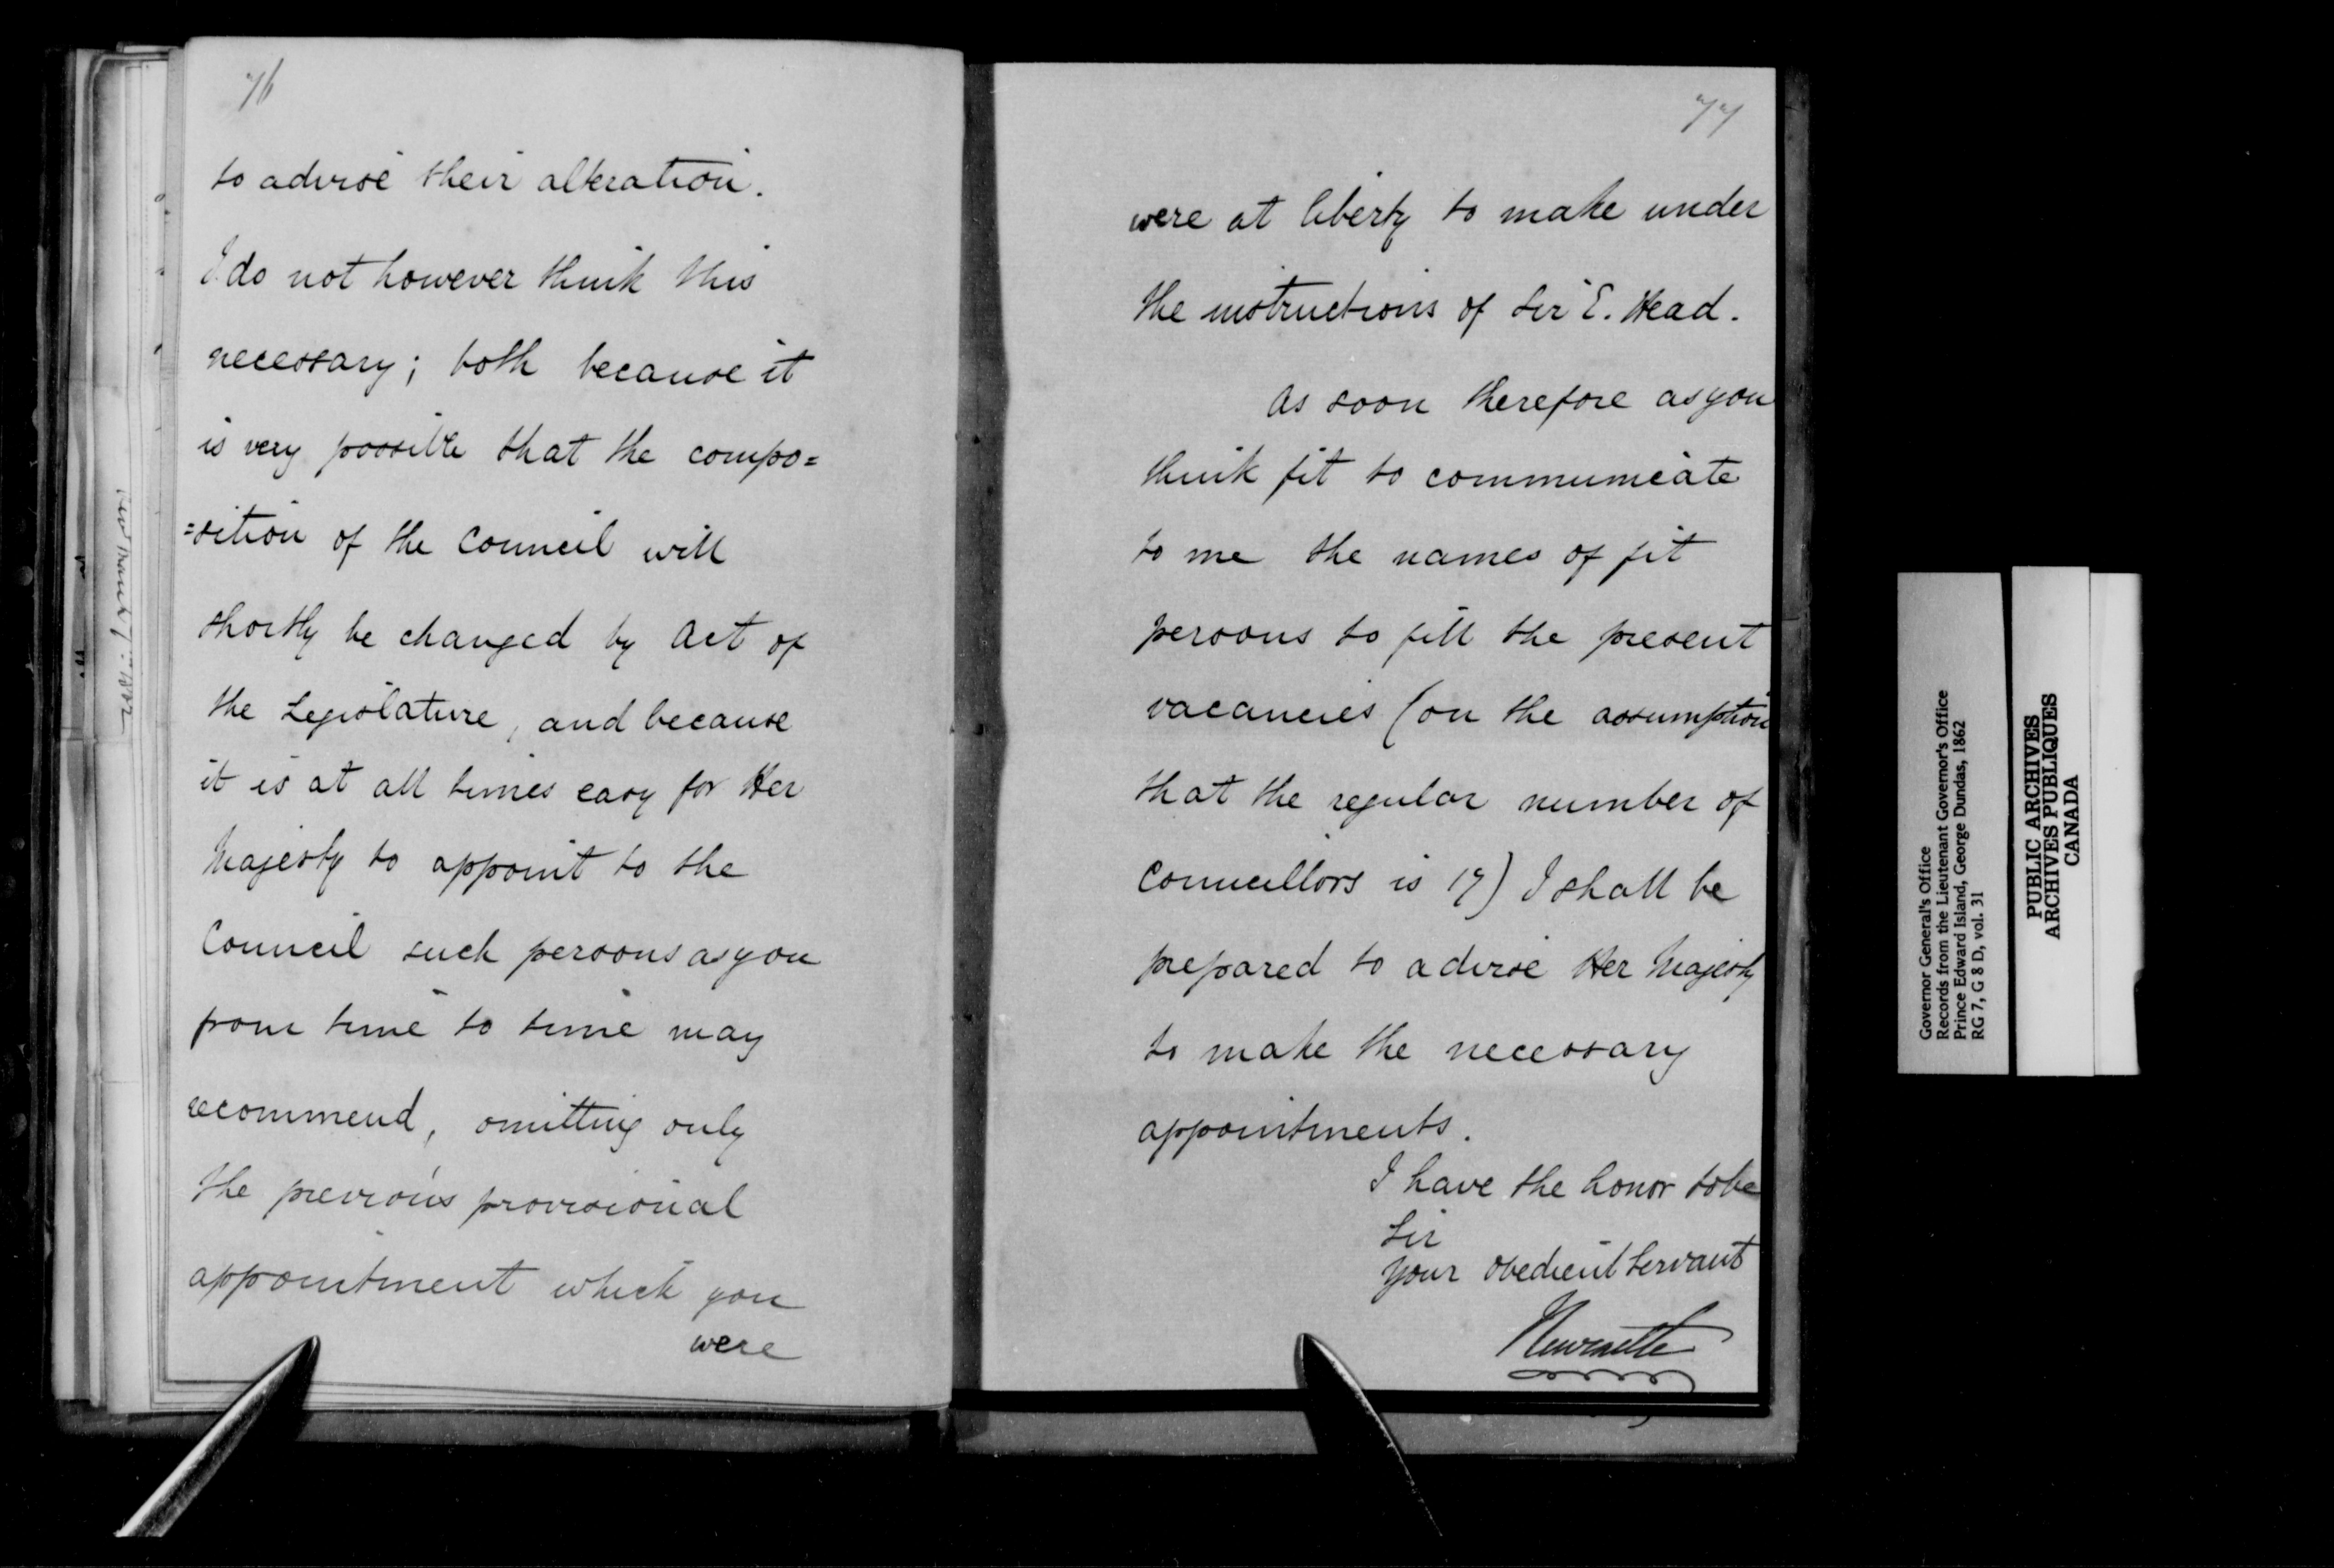 76
to advise their alteration.
I do not however think this
necessary; both because it
is very possible that the compo=
=sition of the Council will
shortly be changed by Act of
the Legislature, and because
it is at all times easy for Her
Majesty to appoint to the
Council such persons as you
from time to time may
recommend, omitting only
the previous provisional
appointment which you
were
77
were at liberty to make under
the instructions of Sir E. Head.
As soon therefore as you
think fit to communicate
to me the names of fit
persons to fill the present
vacancies (on the assumption
that the regular number of
Councillors is 17) I shall be
prepared to advise Her Majesty
to make the necessary
appointments.
I have the honor to be
Sir
Your obedient Servant
Newcastle
Governor General's Office
Records from the Lieutenant Governor's Office
Prince Edward Island, George Dundas, 1862
RG 7, G 8 D, vol. 31
PUBLIC ARCHIVES
ARCHIVES PUBLIQUES
CANADA